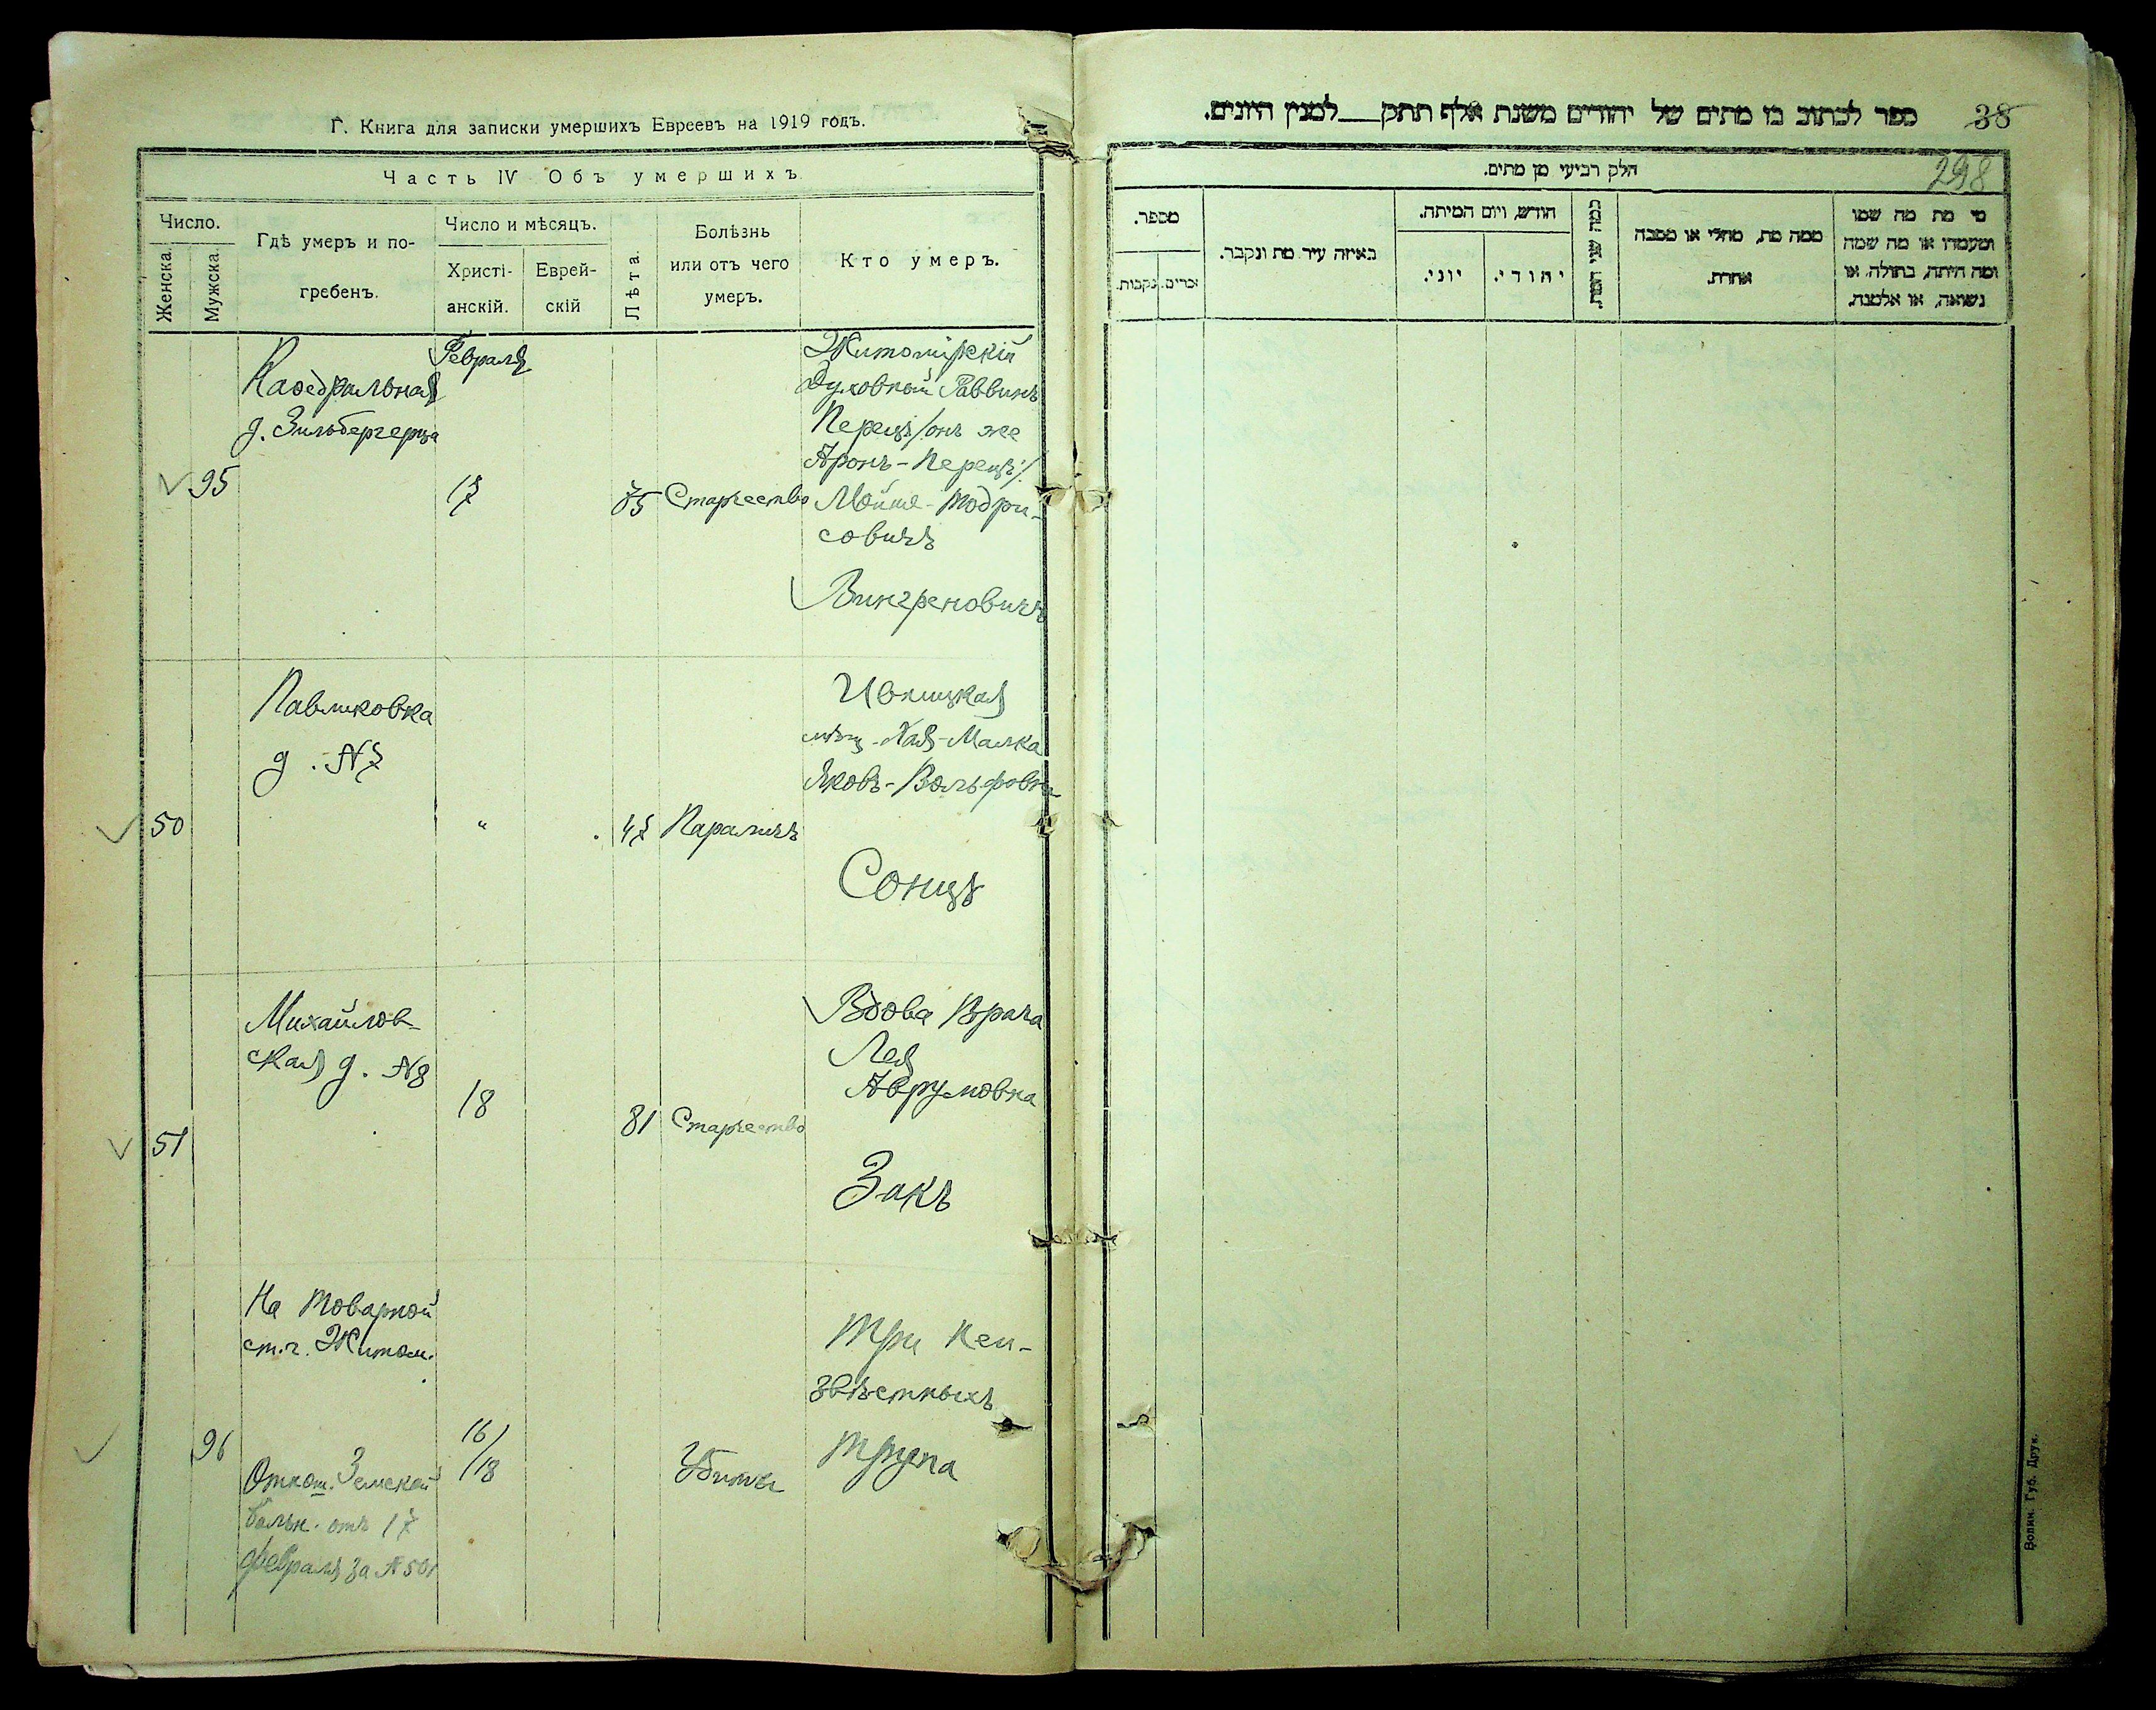 Г. Книга для записки умершихъ Евреевъ на 1919 годъ.
Часть IV Объ умершихъ
Число.
Женска.
Мужска.
Гдѣ умеръ и по-
гребенъ.
Число и мѣсяцъ.
Христі-
анскій.
Еврей-
скій
Лѣта.
Болѣзнь
или отъ чего
умеръ.
Кто умеръ.
95
Каѳедральная
д. Зильбергерца
Февраля
17
75
Старчество
Житомірскій
Духовный Раввинъ
Перецъ /онъ же
Аронъ-Перецъ/
Мойше-Тодри-
совичъ
Вингреновичъ
50
Павликовка
д. №7
"
47
Параличъ
Ивницкая
мѣщ. Хая-Малка
Яковъ-Вольфовна
Сонцъ
51
Михайлов-
ская д. №8
18
81
Старчество
Вдова Врача
Лея
Аврумовна
Закъ
96
На товарной
ст. г. Житом.
Отнош. Земской
больн. отъ 17
февраля за №501
16/18
Убиты
Три неи-
звѣстныхъ
трупа
ספר לכתוב בו מתים של יהודים משנת אלף תתק___למנין היונים.
38
298
חלק רביעי מן מתים.
מספר.
זכרים.
נקבות.
באיזה עיר מת ונקבר.
חודש, ויום המיתה.
יוני.
יהודי.
כמה שני המת.
ממה מת, מחלי או מסבה
אחרת.
מי מת מה שמו
ומעמדו או מה שמה
ומה היתה, בתולה או
נשואה, או אלמנה.
Волин. Губ. Друк.